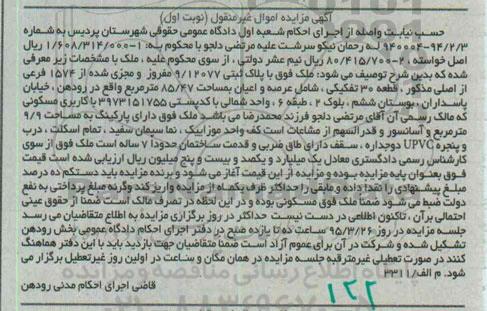 آگهی مزایده اموال غیرمنقول (نوبت اول)
حسب نیابت واصله از اجرای احکام شعبه اول دادگاه عمومی حقوقی شهرستان پردیس به شماره
۹۴۰۰۰۴-۹۴/۲/۳ له رحمان نیکو سرشت علیه مرتضی دلجو با محکوم به: ۱-۱/۶۰۸/۳۱۴/۰۰۰ ریال
اصل خواسته، ۲-۸۰/۴۱۵/۷۰۰ ریال نیم عشر دولتی، از سوی محکوم علیه، ملک با مشخصات زیر معرفی
شده که بدین شرح توصیف می شود: ملک فوق با پلاک ثبتی ۹/۱۲۰۷۷ مفروز و مجزی شده از ۱۵۷۴ فرعی
از اصلی مذکور، قطعه ۳۰ تفکیکی، شامل عرصه و اعیان بمساحت ۸۵/۴۷ مترمربع واقع در رودهن، خیابان
پاسداران، بوستان ششم، بلوک ۲، طبقه ۶، واحد شمالی با کدپستی ۳۹۷۳۱۵۱۷۵۵ با کاربری مسکونی
که مالک رسمی آن آقای مرتضی دلجو فرزند محمدرضا می باشد. ملک فوق دارای پارکینگ به مساحت ۹/۹
مترمربع و آسانسور و قدرالسهم از مشاعات است کف واحد موزاییک، نما سیمان سفید، تمام اسکلت، درب
و پنجره UPVC دوجداره، سقف دارای طاق ضربی و قدمت ساختمان حدودا ۷ ساله است ملک فوق از سوی
کارشناس رسمی دادگستری معادل یک میلیارد و یکصد و بیست و پنج میلیون ریال ارزیابی شده است قیمت
فوق بعنوان پایه مزایده بوده و مزایده از این قیمت آغاز می شود و برنده مزایده باید دستکم ده درصد
مبلغ پیشنهادی را نقدا داده و مابقی را حداکثر ظرف یکماه از مزایده واریز کند وگرنه مبلغ پرداختی به نفع
دولت ضبط می شود ضمنا ملک فوق مسکونی بوده و در این لحظه در تصرف مالک است ضمنا از حقوق عینی
احتمالی بر آن، تاکنون اطلاعی در دست نیست حداکثر در روز برگزاری مزایده به اطلاع متقاضیان می رسد
جلسه مزایده در روز ۹۵/۳/۲۶ ساعت ده تا یازده صبح در دفتر اجرای احکام دادگاه عمومی بخش رودهن
تشکیل شده و شرکت در آن برای عموم آزاد است ضمنا متقاضیان جهت بازدید باید با این دفتر هماهنگ
کنند در صورت تعطیلی غیرمترقبه جلسه مزایده در همان مکان و ساعت در اولین روز غیرتعطیل برگزار می
شود. م الف/۳۳۱۱
قاضی اجرای احکام مدنی رودهن
۱۲۲